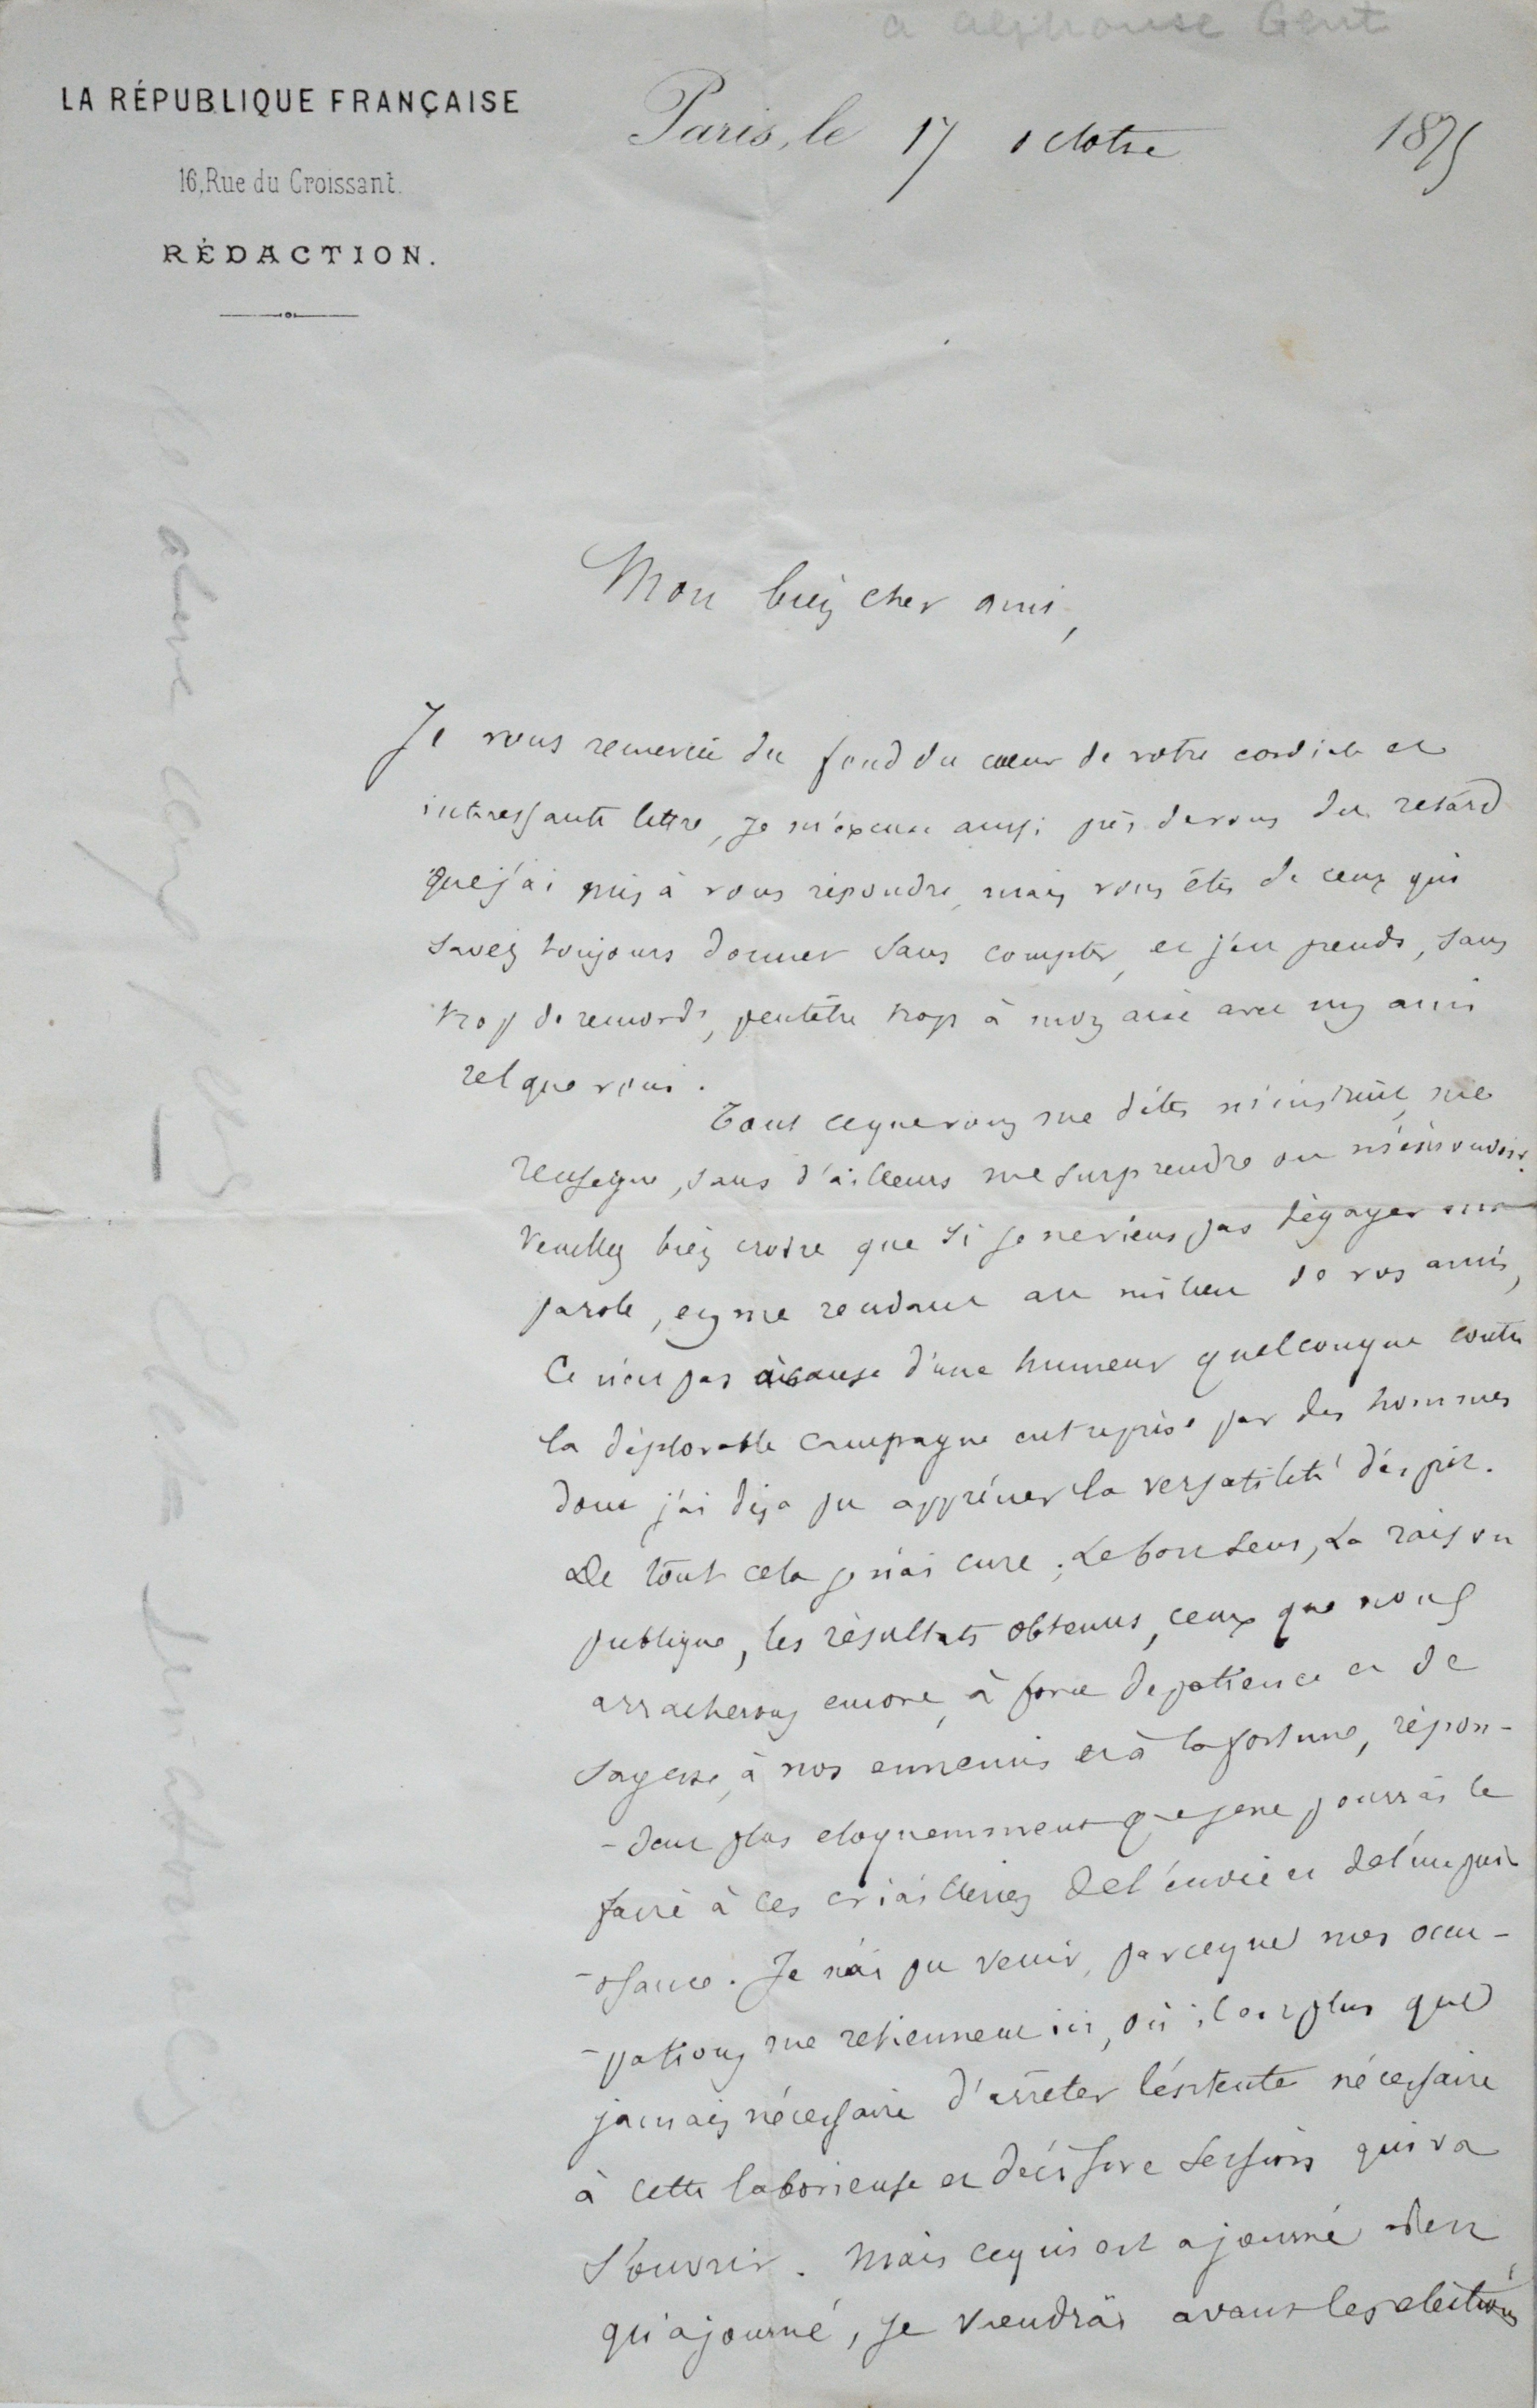 a Alphonse Gent
LA RÉPUBLIQUE FRANÇAISE
16, Rue du Croissant.
RÉDACTION.
Paris, le 17 octobre 1875
Mon bien cher ami,
Je vous remercie du fond du cœur de votre cordiale et
interessante lettre, je m'excuse aussi près de vous du retard
que j'ai mis à vous répondre, mais vous êtes de ceux qui
savez toujours donner sans compter, et j'en prends, sans
trop de remords, peutêtre trop à mon aise avec un ami
tel que vous.
Tout ce que vous me dites m'instruit, me
renseigne, sans d'ailleurs me surprendre ou m'émouvoir.
Veuillez bien croire que si je ne viens pas dégager ma
parole, en me rendant au milieu de vos amis,
Ce n'est pas à cause d'une humeur quelconque contre
la déplorable campagne entreprise par des hommes
dont j'ai déja pu apprécier la versatilité d'esprit.
De tout cela je n'ai cure ; Le bon sens, La raison
publique, les résultats obtenus, ceux que nous
arracherons encore, à force de patience et de
sagesse, à nos ennemis et à la fortune, répon-
-dent plus eloquemment que je ne pourrais le
faire à ces criailleries de l'envie et de l'impuis
-sance. Je n'ai pu venir, parceque mes occu-
-pations me retiennent ici, où il est plus que
jamais nécessaire d'arrêter l'entente nécessaire
à cette laborieuse et décisive session qui va
s'ouvrir. Mais ce qui est ajourné n'est
qu'ajourné, je viendrai avant les élections